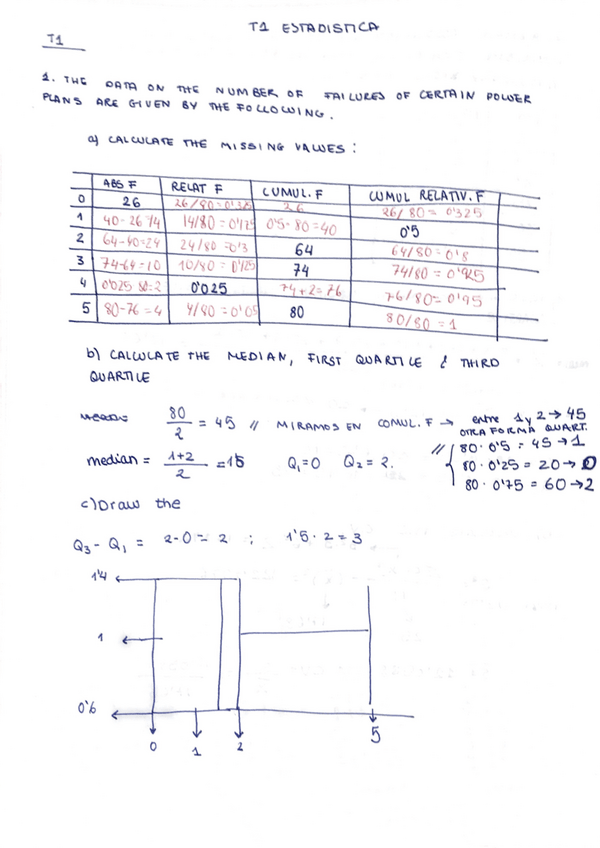 T1 ESTADISTICA
T1
1. THE DATA ON THE NUMBER OF FAILURES OF CERTAIN POWER
PLANS ARE GIVEN BY THE FOLLOWING.
a) CALCULATE THE MISSING VALUES:
ABS F RELAT F CUMUL. F CUMUL RELATIV. F
0 26 26/80=0'325 26 26/80=0'325
1 40-26=14 14/80=0'175 0'5·80=40 0'5
2 64-40=24 24/80=0'3 64 64/80=0'8
3 74-64=10 10/80=0'125 74 74/80=0'925
4 0'025·80=2 0'025 74+2=76 76/80=0'95
5 80-76=4 4/80=0'05 80 80/80=1
b) CALCULATE THE MEDIAN, FIRST QUARTILE & THIRD
QUARTILE
80/2 = 45 // MIRAMOS EN COMUL. F → entre 1 y 2 → 45
OTRA FORMA QUART.
// 80·0'5 = 45 → 1
median = 1+2/2 = 1'5 Q1=0 Q2=2. 80·0'25 = 20 → 0
80·0'75 = 60 → 2
c) Draw the
Q3 - Q1 = 2-0 = 2 ; 1'5·2 = 3
1'4
1
0'6
0 1 2 5